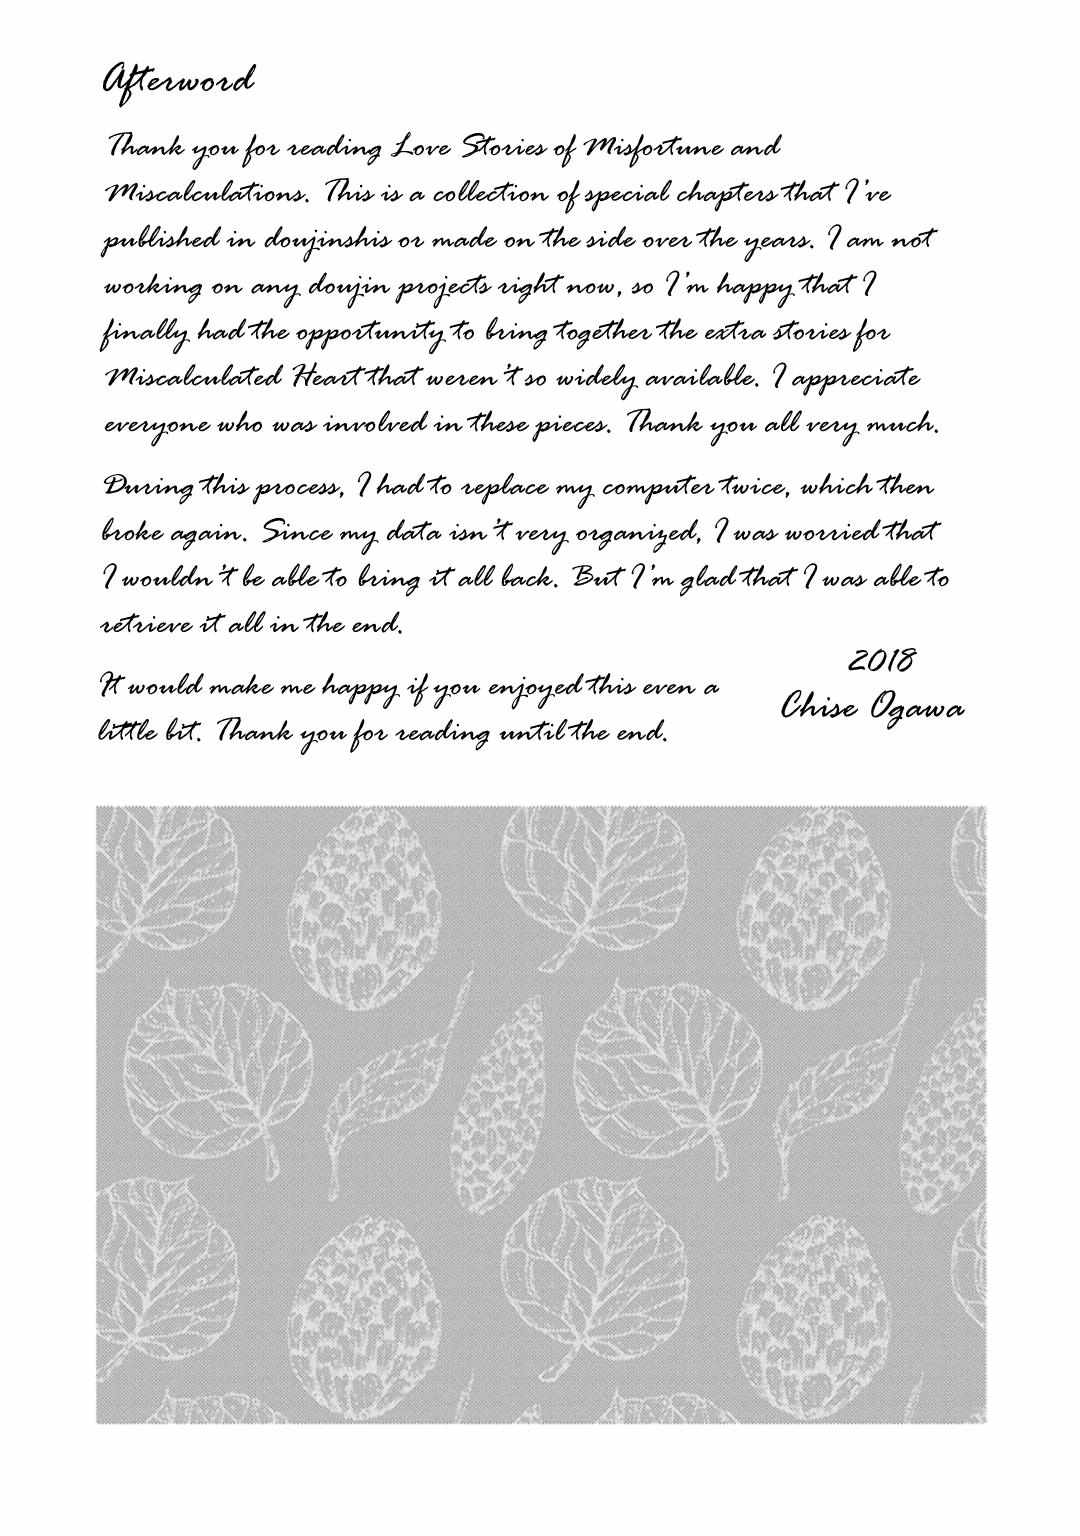 Afterword
Thank you for reading Love Stories of Misfortune and
Miscalculations. This is a collection of special chapters that I've
published in doujinshis or made on the side over the years. I am not
working on any doujin projects right now, so I'm happy that I
finally had the opportunity to bring together the extra stories for
Miscalculated Heart that weren't so widely available. I appreciate
everyone who was involved in these pieces. Thank you all very much.
During this process, I had to replace my computer twice, which then
broke again. Since my data isn't very organized, I was worried that
I wouldn't be able to bring it all back. But I'm glad that I was able to
retrieve it all in the end.
It would make me happy if you enjoyed this even a
little bit. Thank you for reading until the end.
2018
Chise Ogawa